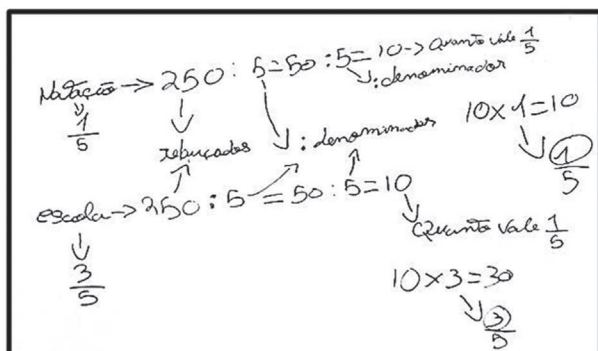 Natação → 250 : 5 = 50 : 5 = 10 → Quanto vale 1/5
↓ : denominador
1/5
rebuçados ↓ : denominador
10 x 1 = 10
1/5
escola → 250 : 5 = 50 : 5 = 10
3/5
Quanto vale 1/5
10 x 3 = 30
3/5